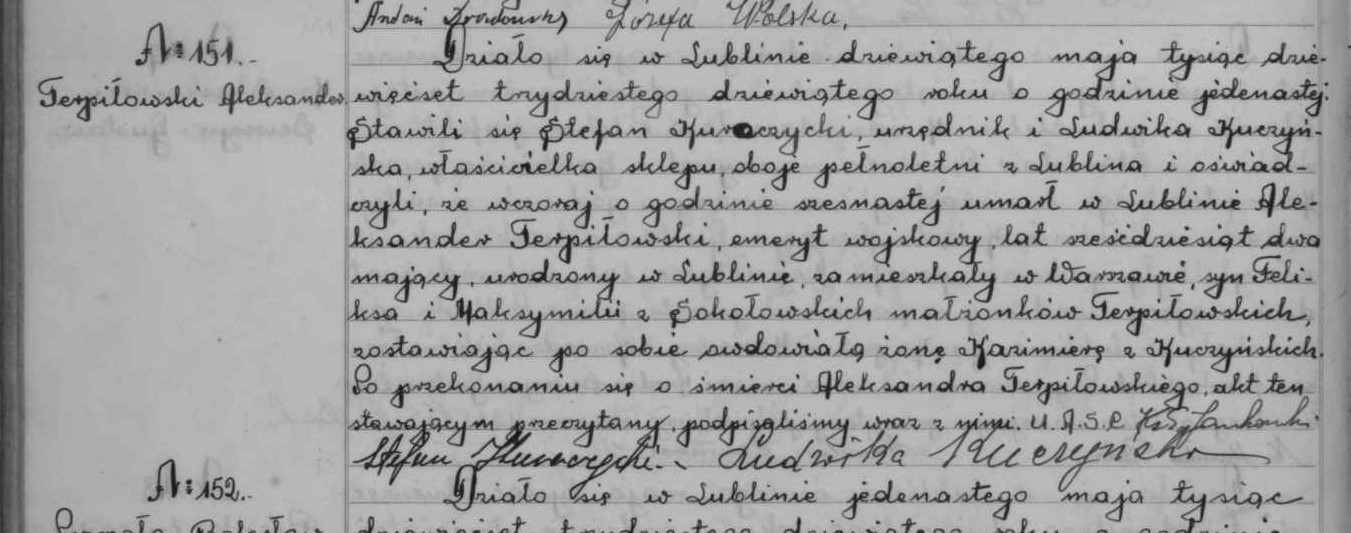 Józefa Wolska.
№ 151.
Terpiłowski Aleksander
Działo się w Lublinie dziewiątego maja tysiąc dzie-
więćset trzydziestego dziewiątego roku o godzinie jedenastej.
Stawili się Stefan Kuroczycki, urzędnik i Ludwika Kuczyń-
ska, właścicielka sklepu, oboje pełnoletni z Lublina i oświad-
czyli, że wczoraj o godzinie szesnastej umarł w Lublinie Ale-
ksander Terpiłowski, emeryt wojskowy, lat sześćdziesiąt dwa
mający, urodzony w Lublinie, zamieszkały w Warszawie, syn Feli-
ksa i Maksymilii z Sokołowskich małżonków Terpiłowskich,
zostawiając po sobie owdowiałą żonę Kazimierę z Kuczyńskich.
Po przekonaniu się o śmierci Aleksandra Terpiłowskiego, akt ten
stawającym przeczytany, podpisaliśmy wraz z nimi. U.A.S.C.
Stefan Kuroczycki. Ludwika Kuczyńska
№ 152.
Działo się w Lublinie jedenastego maja tysiąc